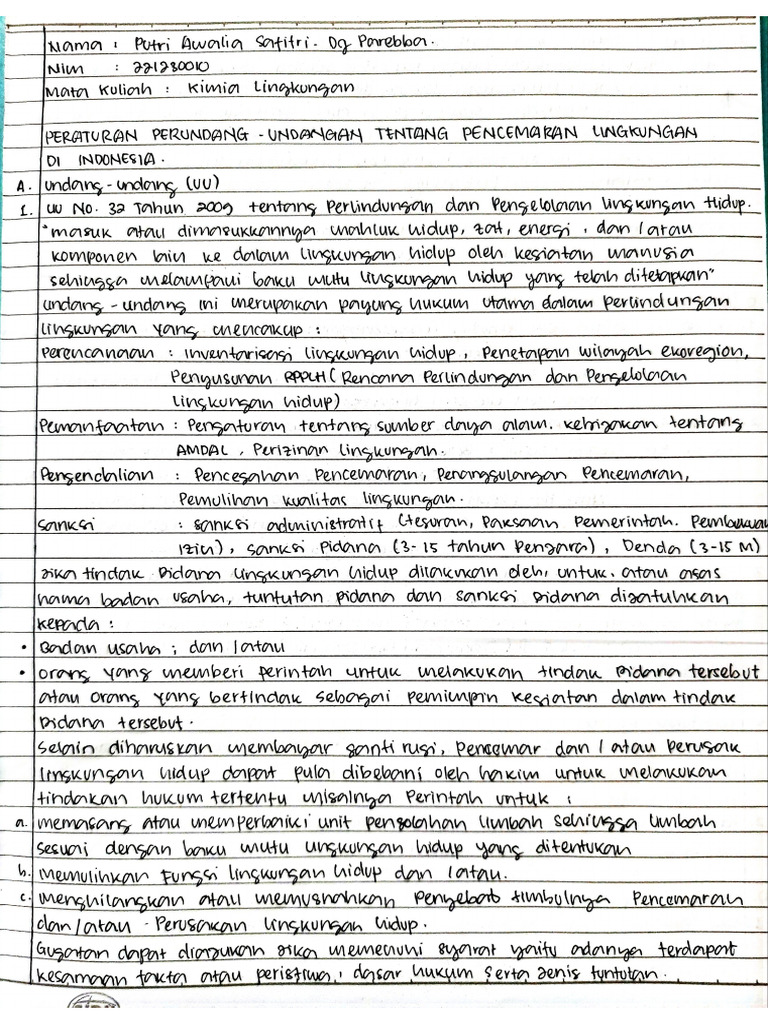 Nama : Putri Awalia Safitri. Dg Parebba.
Nim : 221230010
Mata Kuliah : Kimia Lingkungan
PERATURAN PERUNDANG - UNDANGAN TENTANG PENCEMARAN LINGKUNGAN
DI INDONESIA.
A. undang-undang (UU)
1. UU No. 32 Tahun 2009 tentang Perlindungan dan Pengelolaan Lingkungan Hidup.
"masuk atau dimasukkannya mahluk hidup, zat, energi, dan/atau
komponen lain ke dalam lingkungan hidup oleh kegiatan manusia
sehingga melampaui baku mutu lingkungan hidup yang telah ditetapkan"
undang-undang ini merupakan payung hukum utama dalam perlindungan
lingkungan yang mencakup :
Perencanaan : Inventarisasi lingkungan hidup, Penetapan wilayah ekoregion,
Penyusunan RPPLH (Rencana Perlindungan dan Pengelolaan
Lingkungan hidup)
Pemanfaatan : Pengaturan tentang sumber daya alam. kebijakan tentang
AMDAL, Perizinan lingkungan.
Pengendalian : Pencegahan Pencemaran, Penanggulangan Pencemaran,
Pemulihan kualitas lingkungan.
Sanksi : sanksi administratif (tesuran, Paksaan Pemerintah. Pembekuan
Izin), sanksi Pidana (3-15 tahun Penjara), Denda (3-15 M)
Jika tindak Pidana lingkungan hidup dilakukan oleh, untuk. atau atas
nama badan usaha, tuntutan pidana dan sanksi Pidana dijatuhkan
kepada :
• Badan usaha ; dan/atau
• orang yang memberi perintah untuk melakukan tindak Pidana tersebut
atau orang yang bertindak sebagai pemimpin kegiatan dalam tindak
Pidana tersebut.
Selain diharuskan membayar ganti rugi, pencemar dan/atau perusak
lingkungan hidup dapat pula dibebani oleh hakim untuk melakukan
tindakan hukum tertentu misalnya Perintah untuk :
a. memasang atau memperbaiki unit pengolahan limbah sehingga limbah
sesuai dengan baku mutu lingkungan hidup yang ditentukan
b. Memulihkan Fungsi lingkungan hidup dan/atau.
c. Menghilangkan atau memusnahkan Penyebab timbulnya Pencemaran
dan/atau Perusakan lingkungan hidup.
Gugatan dapat diajukan jika memenuhi syarat yaitu adanya terdapat
kesamaan fakta atau peristiwa, dasar hukum serta jenis tuntutan.